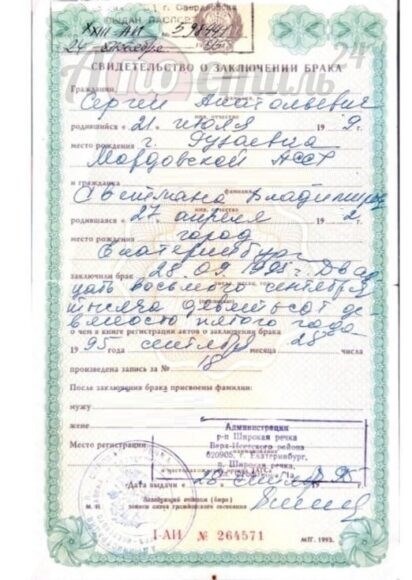 г. Свердловска
ВЫДАН ПАСПОРТ
XXIII-АИ
24
СВИДЕТЕЛЬСТВО О ЗАКЛЮЧЕНИИ БРАКА
Гражданин
Сергей Анатольевич
имя, отчество
родившийся « 21 » июля 19 9 г.
место рождения г. Рузаевка
Мордовской АССР
и гражданка
фамилия
Светлана Владимиров
имя, отчество
родившаяся « 27 апреля 19 2 г.
место рождения город
Екатеринбург
заключили брак 28.09.1995 г. Двад
цать восьмого сентября
тысяча девятьсот де
вяносто пятого года
о чем в книге регистрации актов о заключении брака
19 95 года сентября месяца 28 числа
произведена запись за № 18
После заключения брака присвоены фамилии:
мужу
жене
Место регистрации
Администрация
р-п Широкая речка
Верх-Исетского района
620905, г. Екатеринбург,
п. Широкая речка,
Дата выдачи « 28 95
Заведующий отделом (бюро)
записи актов гражданского состояния
I-АИ № 264571
МПГ. 1993.